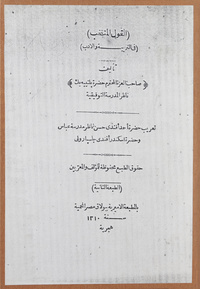 (القول المنتخب)
(في التربية والأدب)
تأليف
صاحب العزة المحترم حضرة بلتيه بك
ناظر المدرسة التوفيقية
تعريب حضرة أحمد أفندي حسن ناظر مدرسة عباس
وحضرة اسكندر أفندي
حقوق الطبع محفوظة للمؤلف والمعربين
(الطبعة الثانية)
بالمطبعة الاميرية ببولاق مصر المحمية
سنة ١٣١٠
هجرية